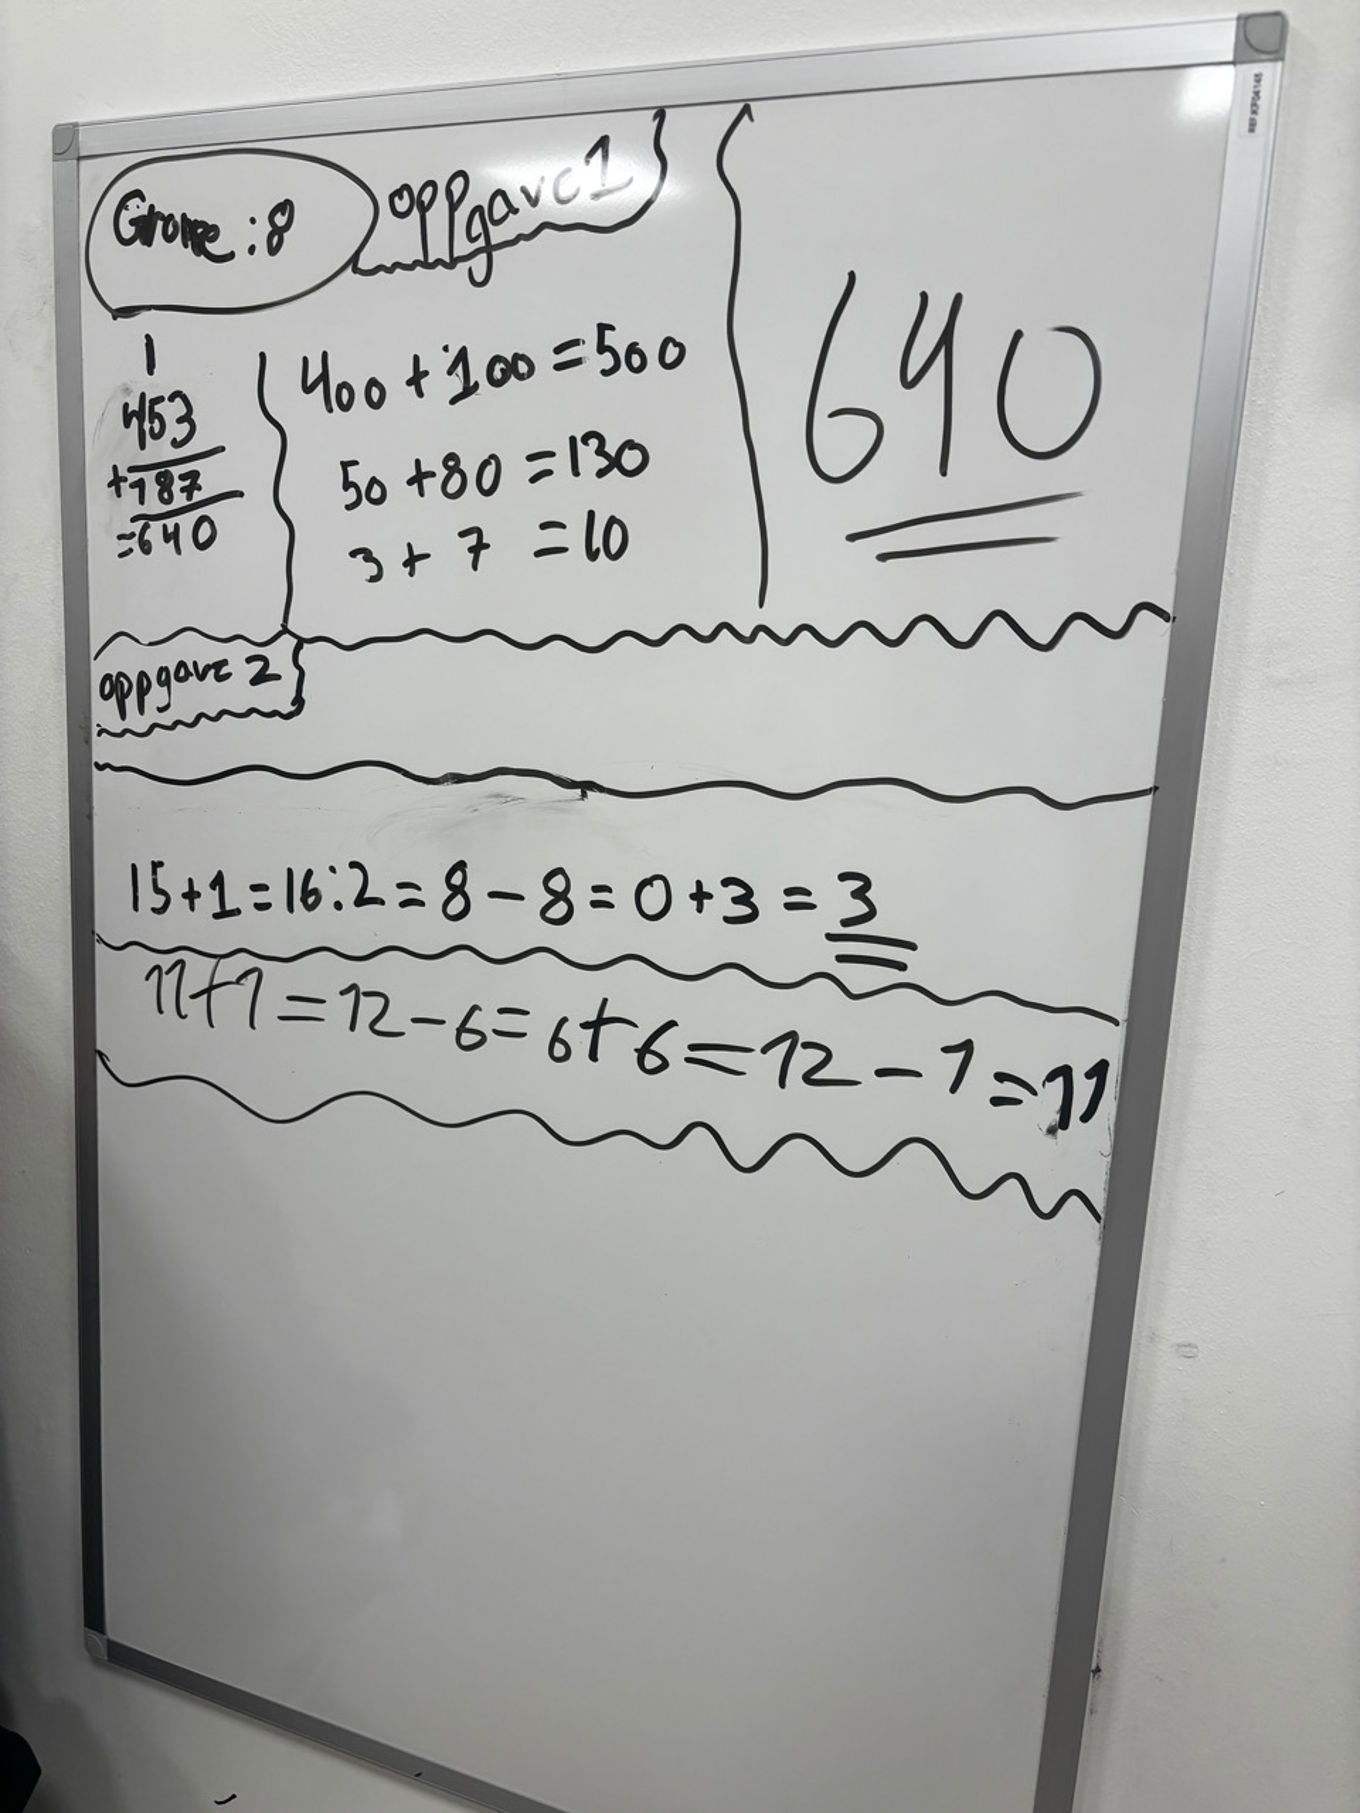 oppgave 1
1
453
+187
=640
400 + 100 = 500
50 + 80 = 130
3 + 7 = 10
640
oppgave 2
15+1=16:2=8-8=0+3=3
11+1=12-6=6+6=12-1=11